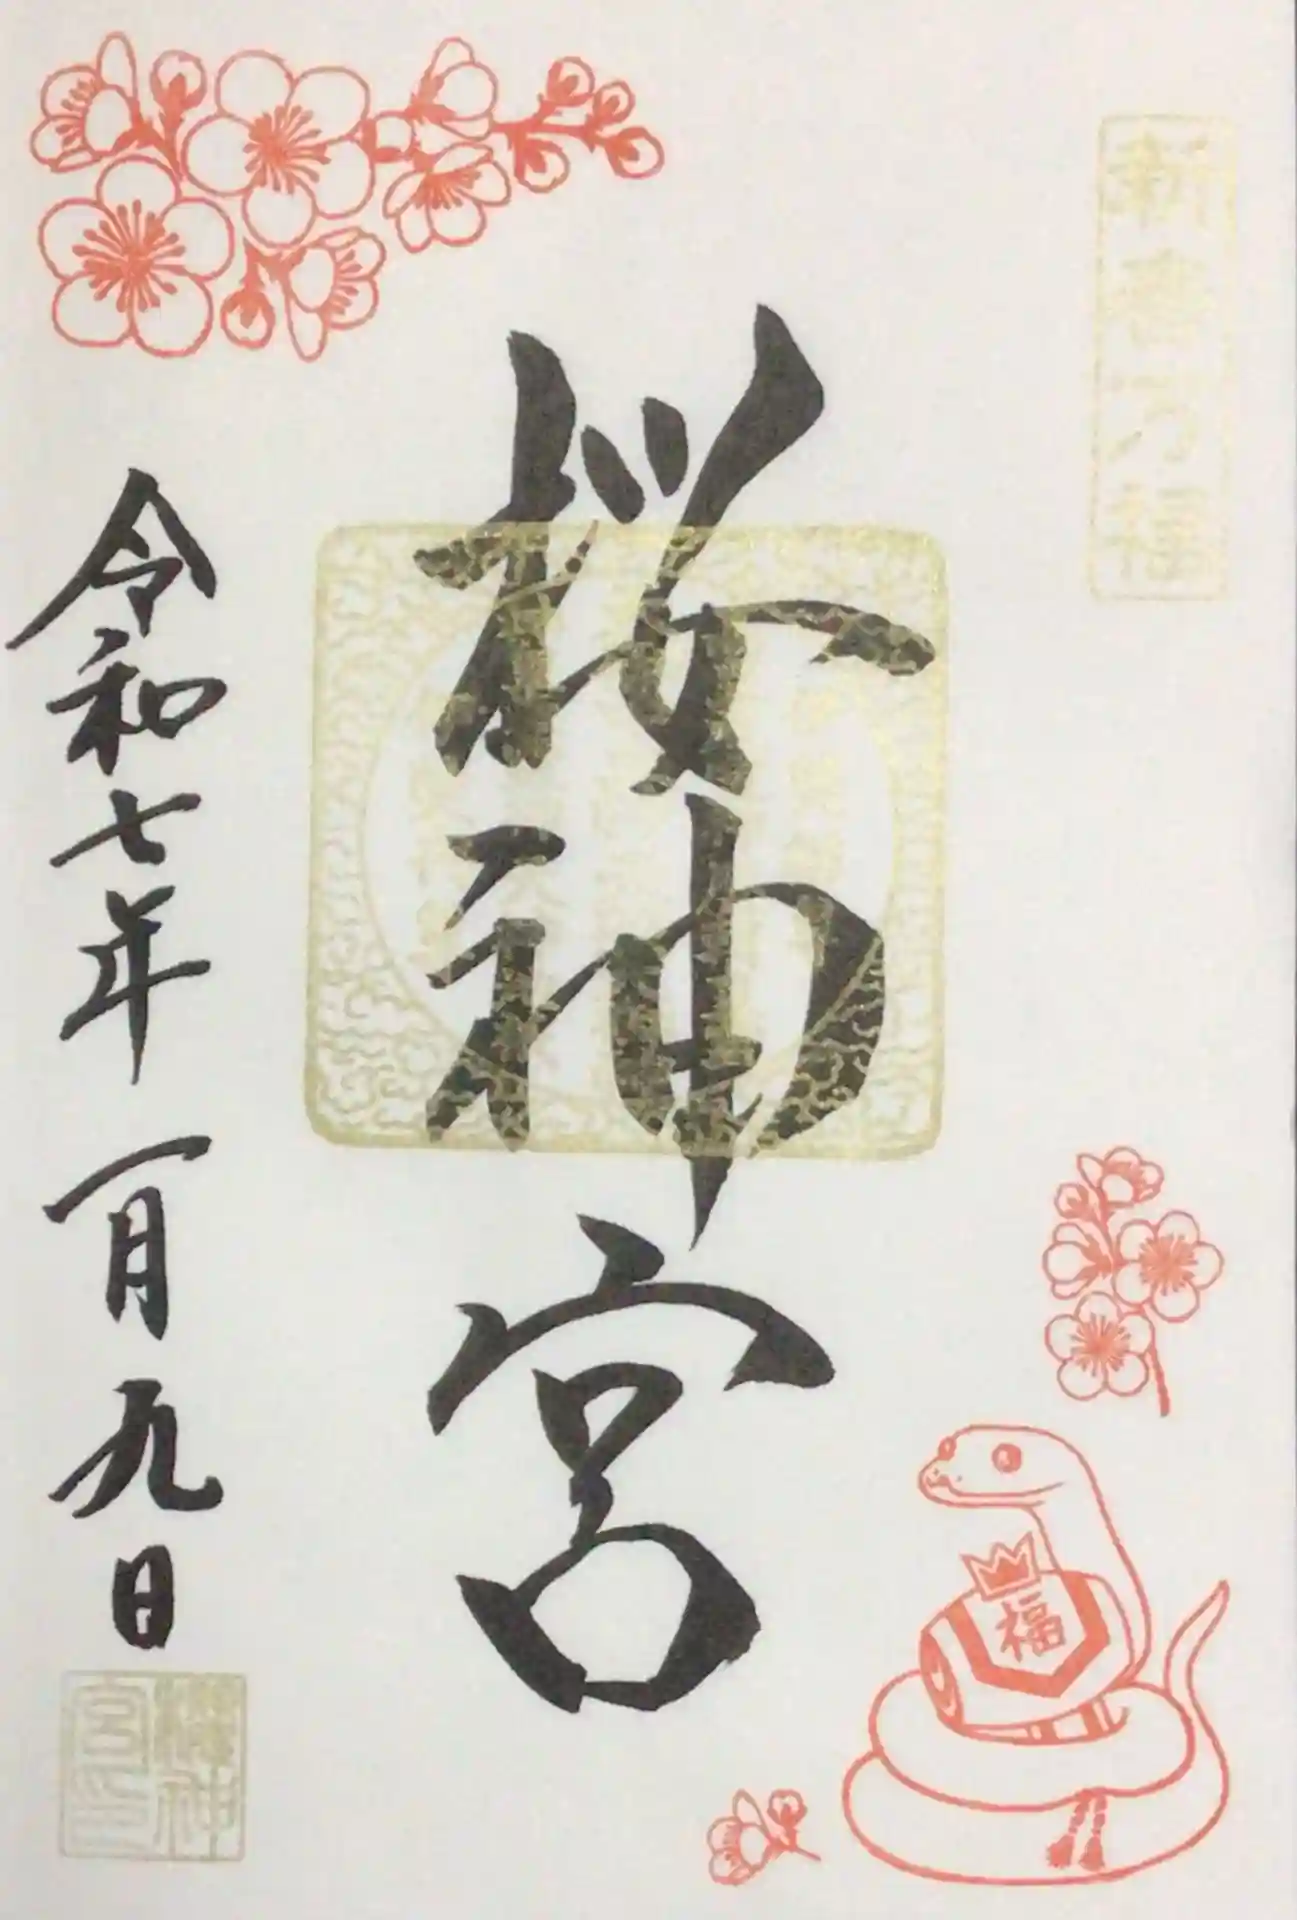 新春乃福
桜神宮
福
令和七年一月九日
櫻神
宮印